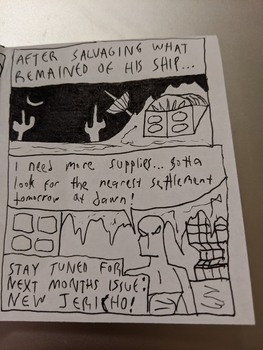 AFTER SALVAGING WHAT
REMAINED OF HIS SHIP...
I need more supplies... gotta
look for the nearest settlement
tomorrow at dawn!
STAY TUNED FOR
NEXT MONTHS ISSUE:
NEW JERICHO!